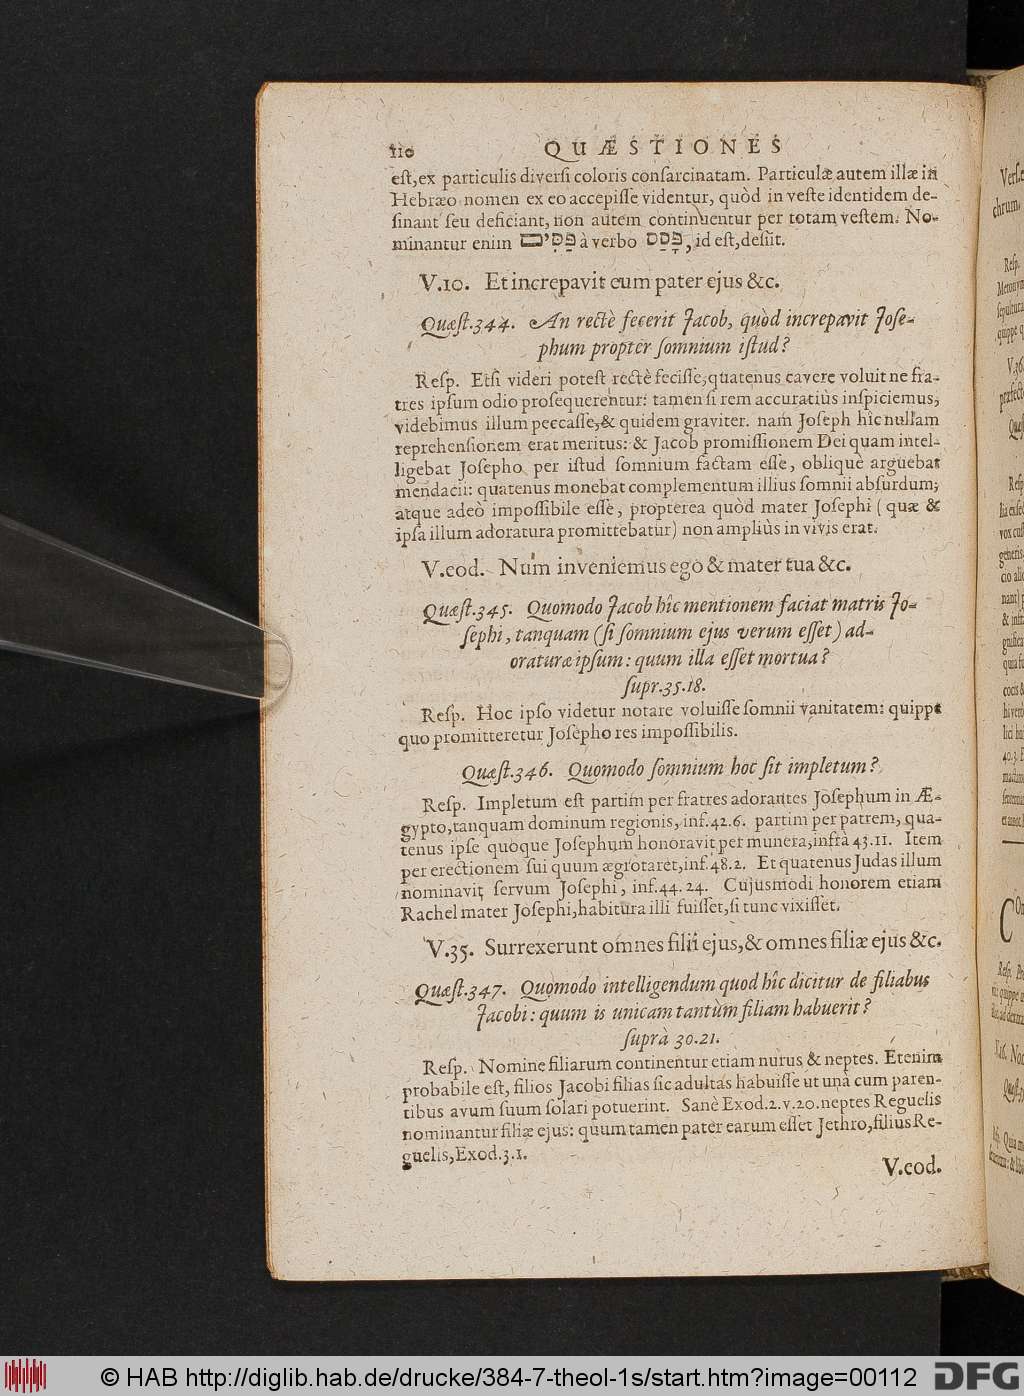 110 QUÆSTIONES
eſt, ex particulis diverſi coloris conſarcinatam. Particulæ autem illæ in
Hebræo nomen ex eo accepiſſe videntur, quòd in veſte identidem de-
ſinant ſeu deficiant, non autem continuentur per totam veſtem. No-
minantur enim פַּסִּים à verbo פָּסַס, id eſt, deſiit.
V.10. Et increpavit eum pater ejus &c.
Quæſt.344. An rectè fecerit Jacob, quòd increpavit Joſe-
phum propter ſomnium iſtud?
Reſp. Etſi videri poteſt rectè feciſſe, quatenus cavere voluit ne fra-
tres ipſum odio proſequerentur: tamen ſi rem accuratiùs inſpiciemus,
videbimus illum peccaſſe, & quidem graviter. nam Joſeph hîc nullam
reprehenſionem erat meritus: & Jacob promiſſionem Dei quam intel-
ligebat Joſepho per iſtud ſomnium factam eſſe, obliquè arguebat
mendacii: quatenus monebat complementum illius ſomnii abſurdum,
atque adeò impoſſibile eſſe, propterea quòd mater Joſephi (quæ &
ipſa illum adoratura promittebatur) non ampliùs in vivis erat.
V.eod. Num inveniemus ego & mater tua &c.
Quæſt.345. Quomodo Jacob hîc mentionem faciat matris Jo-
ſephi, tanquam (ſi ſomnium ejus verum eſſet) ad-
oraturæ ipſum: quum illa eſſet mortua?
ſupr.35.18.
Reſp. Hoc ipſo videtur notare voluiſſe ſomnii vanitatem: quippe
quo promitteretur Joſepho res impoſſibilis.
Quæſt.346. Quomodo ſomnium hoc ſit impletum?
Reſp. Impletum eſt partim per fratres adorantes Joſephum in Æ-
gypto, tanquam dominum regionis, inf.42.6. partim per patrem, qua-
tenus ipſe quoque Joſephum honoravit per munera, infrà 43.11. Item
per erectionem ſui quum ægrotaret, inf.48.2. Et quatenus Judas illum
nominavit ſervum Joſephi, inf.44.24. Cujusmodi honorem etiam
Rachel mater Joſephi, habitura illi fuiſſet, ſi tunc vixiſſet.
V.35. Surrexerunt omnes filii ejus, & omnes filiæ ejus &c.
Quæſt.347. Quomodo intelligendum quod hîc dicitur de filiabus
Jacobi: quum is unicam tantùm filiam habuerit?
ſuprà 30.21.
Reſp. Nomine filiarum continentur etiam nurus & neptes. Etenim
probabile eſt, filios Jacobi filias ſic adultas habuiſſe ut unà cum paren-
tibus avum ſuum ſolari potuerint. Sanè Exod.2.v.20. neptes Reguelis
nominantur filiæ ejus: quum tamen pater earum eſſet Jethro, filius Re-
guelis, Exod.3.1.
V.eod.
© HAB http://diglib.hab.de/drucke/384-7-theol-1s/start.htm?image=00112
DFG